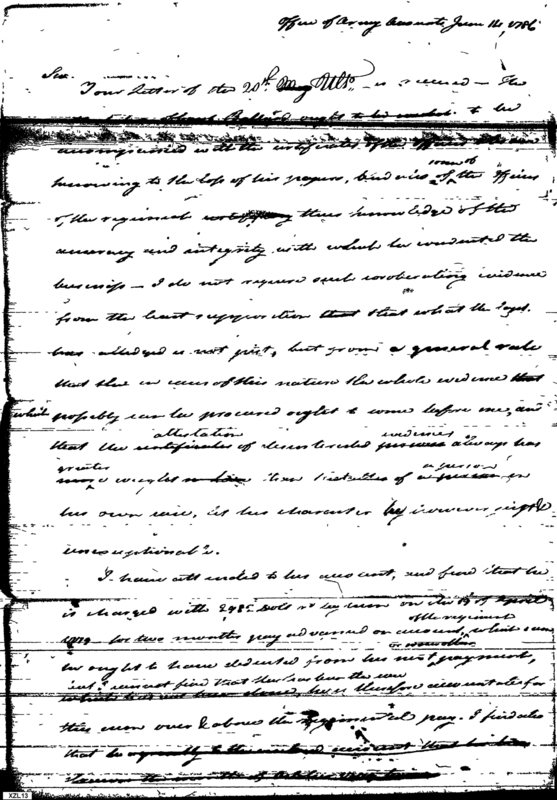 Office of Army Accounts June 14, 1786
Sir.
Your letter of the 20th May Ulto. is received — The
ought to be to be
accompanied with the certificates of the officers
knowing to the loss of his papers, besides some of the officers
of the regiment certifying their knowledge of the
accuracy and integrity with which he conducted the
business — I do not require such coroberating evidence
from the least supposition that that what the Capt.
has alledged is not just, but from a general rule
that there in cases of this nature the whole evidence that
which possibly can be procured ought to come before me, and
attestation evidences
that the certificates of desinterested persons always has
greater a person
more weight than that of a person in
his own case, let his character be however
unexceptionable.
I have attended to his account, and find that he
is charged with Dols on the of April
of the regiment
for two months pay advanced on account, which sum
he ought to have deducted from his next payment,
I cannot find that this has been the case
which has not been done, he is therefore accountable for
this sum over & above the regimental pay. I find also
that he
XZL13